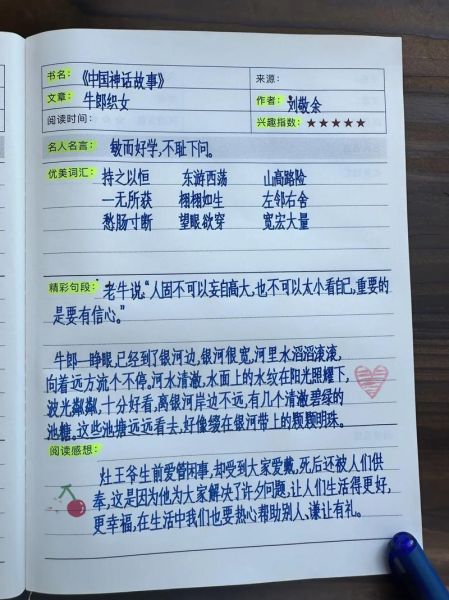 书名：《中国神话故事》 来源：
文章：牛郎织女 作者：刘敬余
阅读时间： 兴趣指数：★★★★★
名人名言：敏而好学，不耻下问。
优美词汇：持之以恒 东游西荡 山高路险
一无所获 栩栩如生 左邻右舍
愁肠寸断 望眼欲穿 宽宏大量
精彩句段：老牛说：“人固不可以妄自高大，也不可以太小看自己，重要的
是要有信心。”
牛郎一睁眼，已经到了银河边，银河很宽，河里水滔滔滚滚，
向着远方流个不停。河水清澈，水面上的水纹在阳光照耀下，
波光粼粼，十分好看，离银河岸边不远，有几个清澈碧绿的
池塘。这些池塘远远看去，好像缀在银河带上的颗颗明珠。
阅读感想：
灶王爷生前爱管闲事，却受到大家爱戴，死后还被人们供
奉，这是因为他为大家解决了许多问题，让人们生活得更好，
更幸福，在生活中我们也要热心帮助别人、谦让有礼。